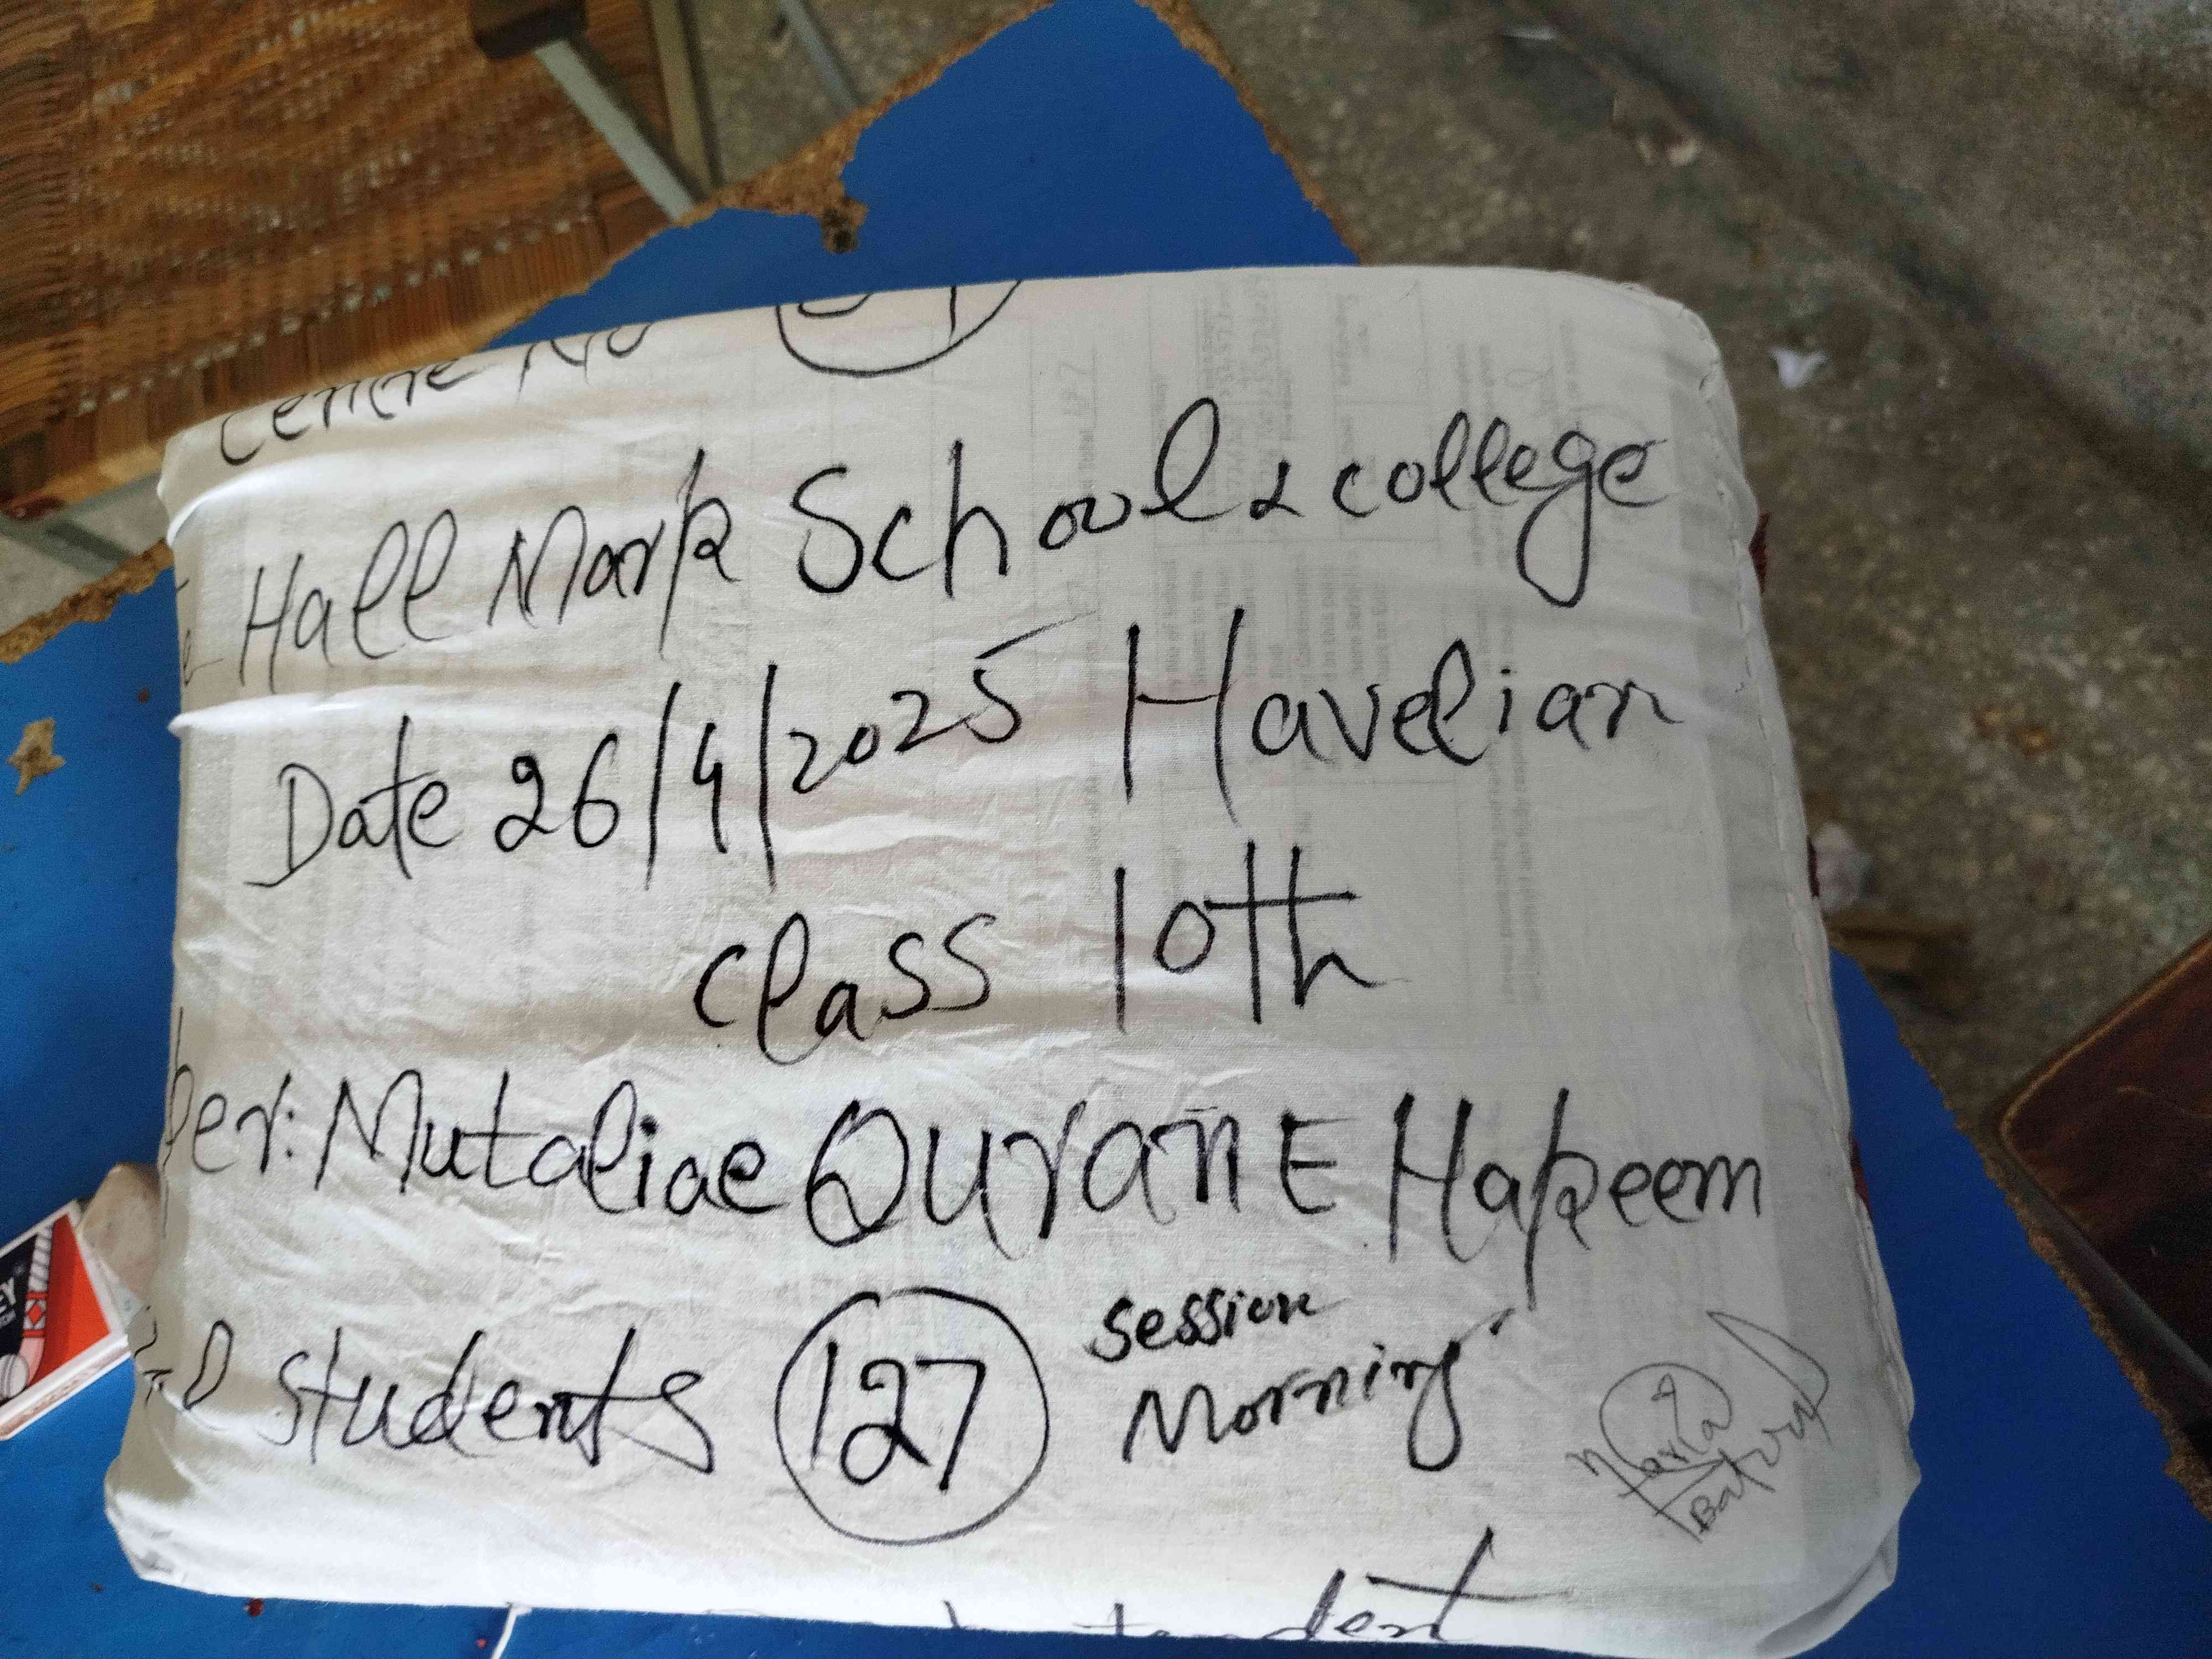 Centre No
Hall Mark School & college
Date 26/4/2025 Havelian
class 10th
per: Mutaliae Quran E Hakeem
students 127 session
Morning
Maria
Batool